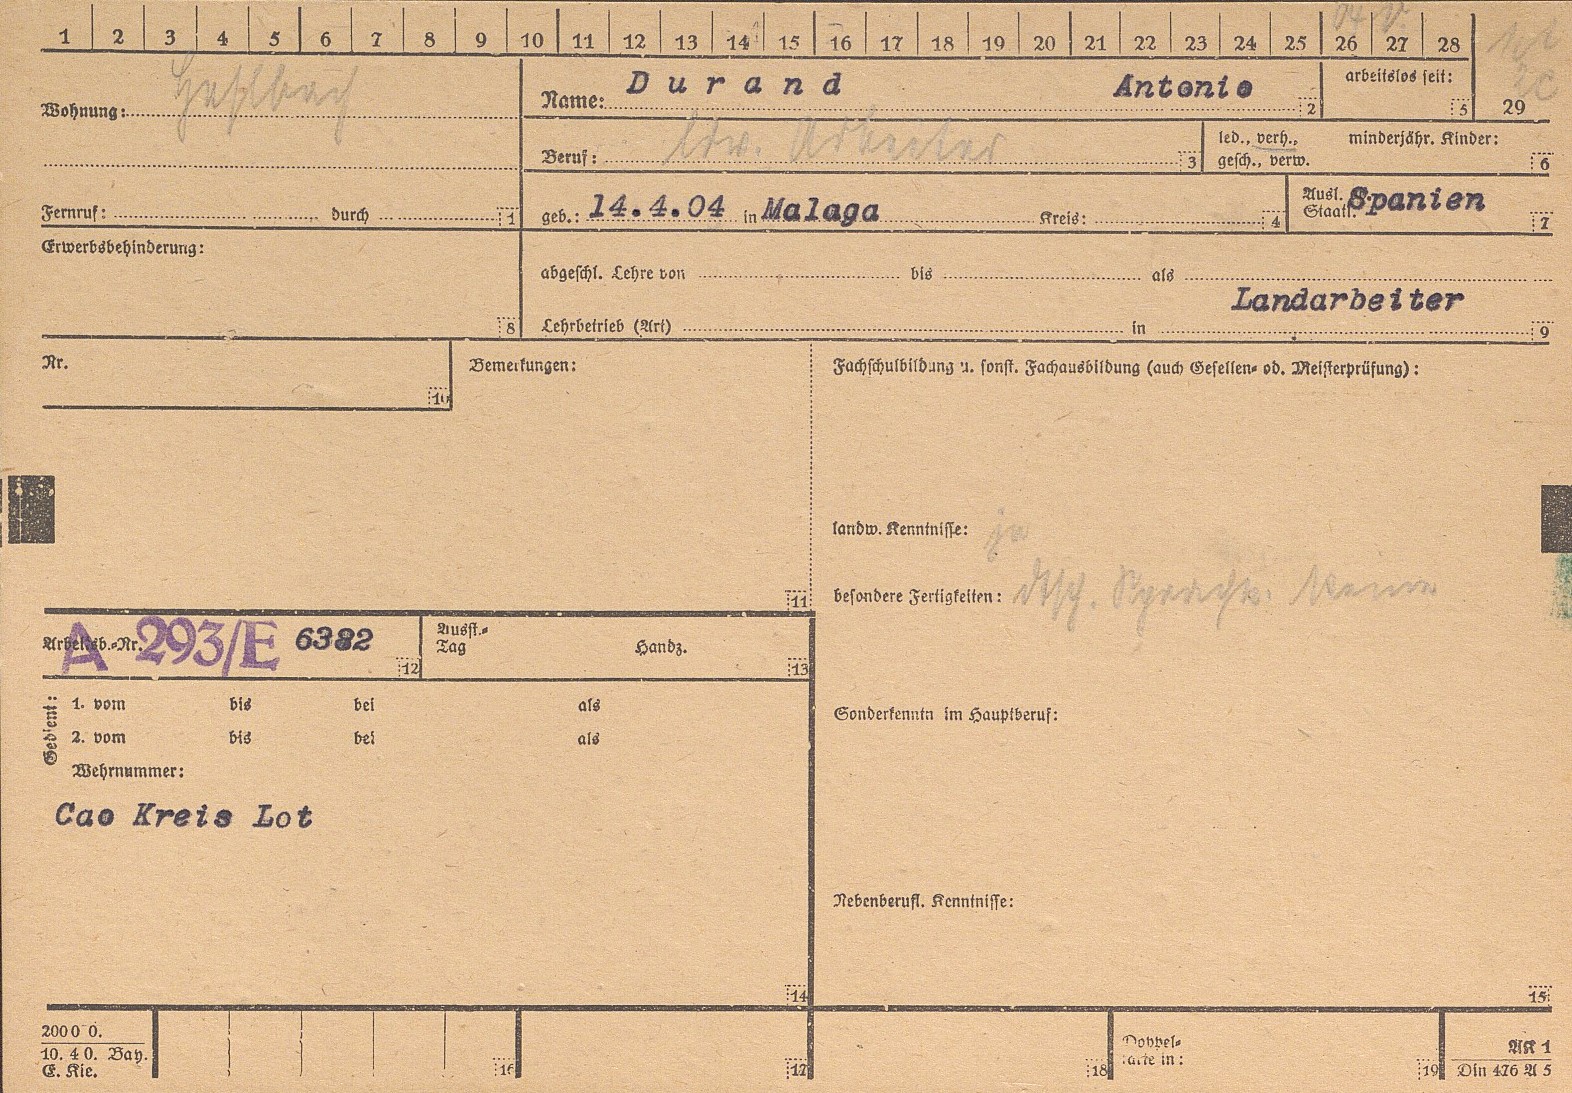 1 2 3 4 5 6 7 8 9 10 11 12 13 14 15 16 17 18 19 20 21 22 23 24 25 26 27 28
29
Wohnung:
Fernruf: durch 1
Name: Durand Antonio 2
arbeitslos seit: 5
Beruf: ldw. Arbeiter 3
led., verh., minderjähr. Kinder:
gesch., verw. 6
geb.: 14.4.04 in Malaga Kreis: 4
Ausl. Spanien
Staatl. 7
Erwerbsbehinderung:
8
abgeschl. Lehre von bis als
Landarbeiter
Lehrbetrieb (Art) in 9
Nr.
10
Bemerkungen:
11
Fachschulbildung u. sonst. Fachausbildung (auch Gesellen- od. Meisterprüfung):
landw. Kenntnisse: ja
besondere Fertigkeiten: dtsch.
Sonderkenntn im Hauptberuf:
Nebenberufl. Kenntnisse:
15
Arbeitsb.-Nr. A 293/E 6382 12
Ausst.-
Tag Handz. 13
Gedient:
1. vom bis bei als
2. vom bis bei als
Wehrnummer:
Cao Kreis Lot
14
2000 0.
10. 40. Bay.
E. Kie.
16
17
18
Doppel-
karte in: 19
AK 1
Din 476 A 5